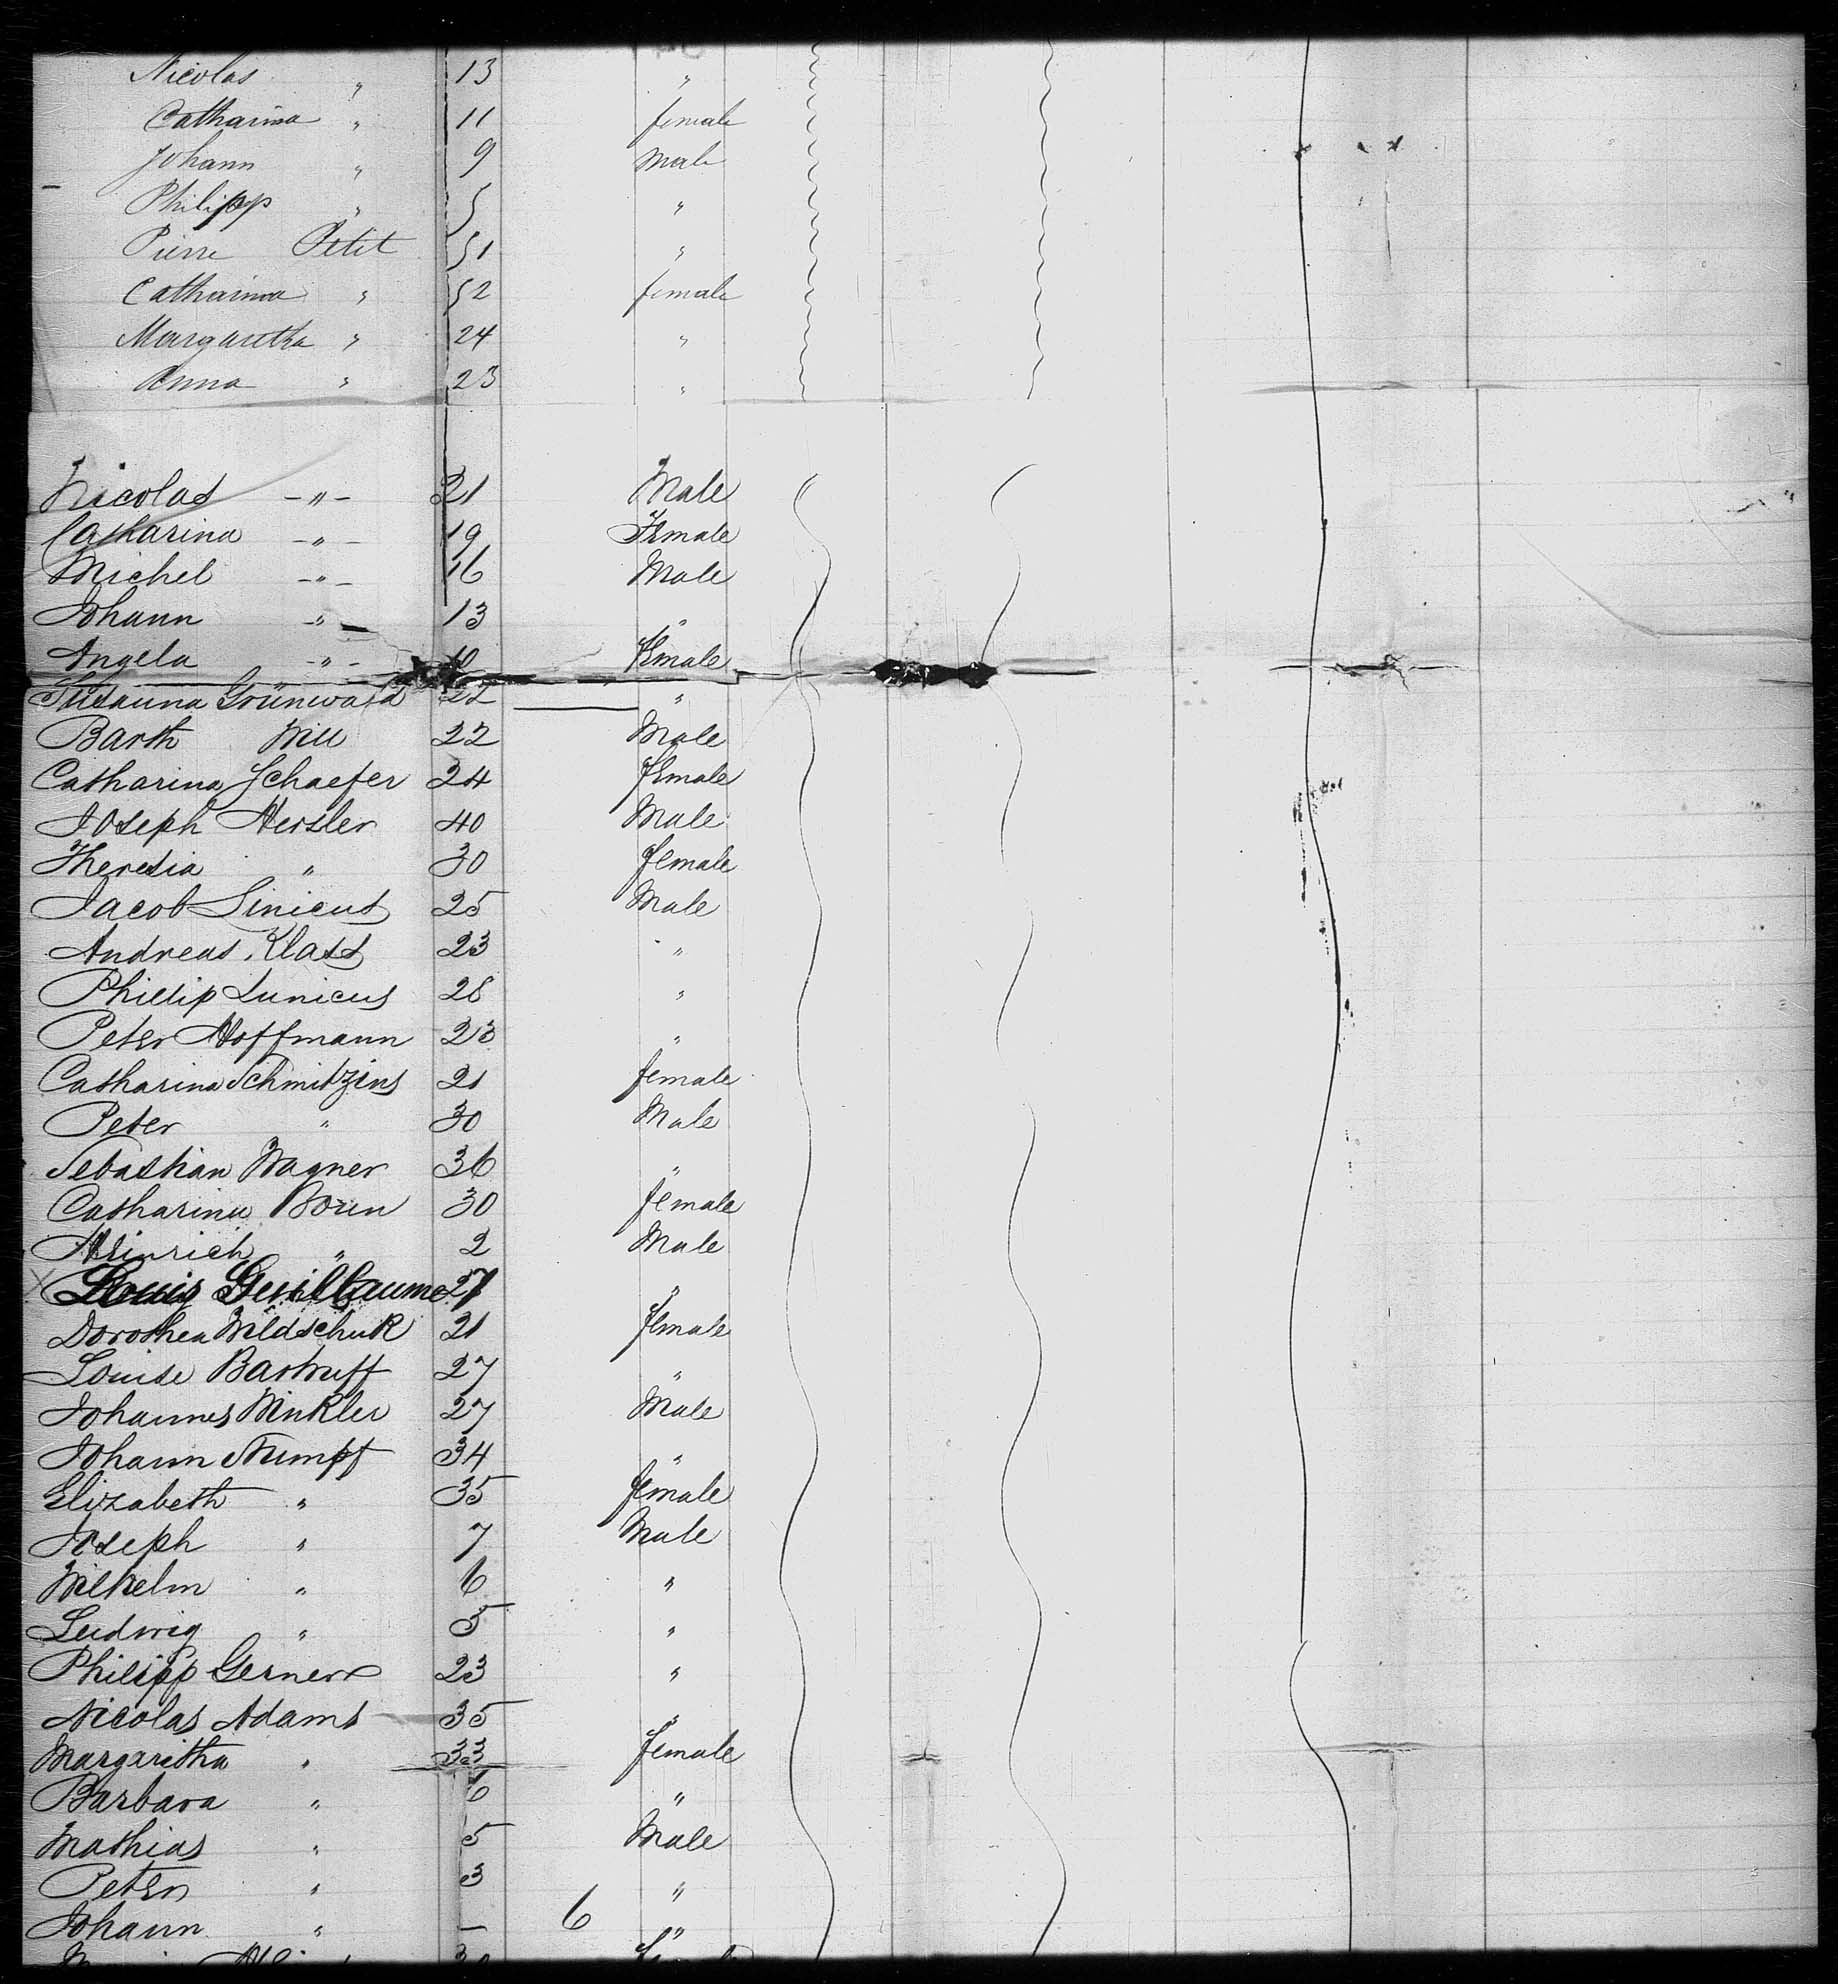 Nicolas " 13 "
Catharina " 11 female
Johann " 9 Male
Philipp " 5 "
Pierre Petit 51 "
Catharina " 52 female
Margaretha " 24 "
Anna " 23 "
Nicolas -"- 21 Male
Catharina -"- 19 Female
Michel -"- 16 Male
Johann -"- 13 "
Angela -"- 10 Female
Susanna Grünwald 22 "
Barth Will 22 Male
Catharina Schaefer 24 female
Joseph Hersler 40 Male
Theresia " 30 female
Jacob Linicus 25 Male
Andreas Klass 23 "
Phillip Lunicus 28 "
Peter Hoffmann 23 "
Catharina Schmitzins 21 female
Peter " 30 Male
Sebastian Wagner 36 "
Catharina 30 female
Heinrich " 2 Male
Louis Guillaume 27 "
Dorothea Wildschuk 21 female
Louise 27 "
Johannes Winkler 27 Male
Johann 34 "
Elizabeth " 35 female
Joseph " 7 Male
Wilhelm " 6 "
Ludwig " 5 "
Philipp Gerner 23 "
Nicolas Adams 35 "
Margaretha " 33 female
Barbara " 6 "
Mathias " 5 Male
Peter " 3 "
Johann " — 6 "